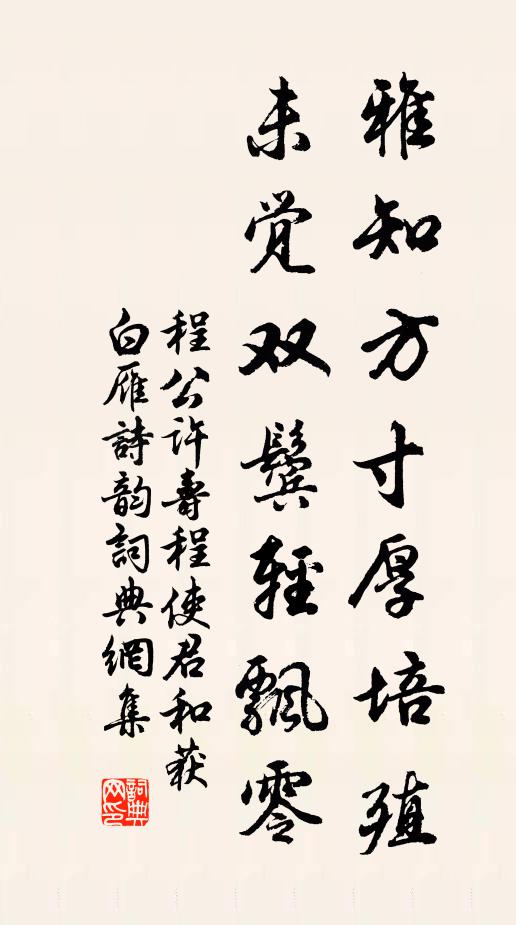 雅知方寸厚培殖
未觉双鬓轻飘零
程公许壽程使君和获
白雁詩韵詞典網集
詞典网印